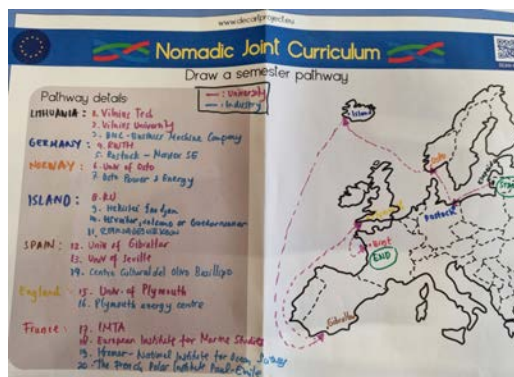 www.decartproject.eu
Nomadic Joint Curriculum
Draw a semester pathway
Pathway details
— : University
— : Industry
LITHUANIA : 1. Vilnius Tech
2. Vilnius University
3. BMC - Business Machine Company
GERMANY : 4. RWTH
5. Rostock -
NORWAY : 6. Univ of Oslo
7. Oslo Power & Energy
ISLAND : 8. RU
9.
10. volcano or
11.
SPAIN : 12. Univ of Gibraltar
13. Univ of Seville
14. Centro Cultural del Olivo
England : 15. Univ. of Plymouth
16. Plymouth energy centre
France : 17. INTA
18. European Institute for Marine Studies
19. - National Institute for Ocean
20. The French Polar Institute Paul-Emile
Island
Oslo
Rostock
Brest
END
Gibraltar